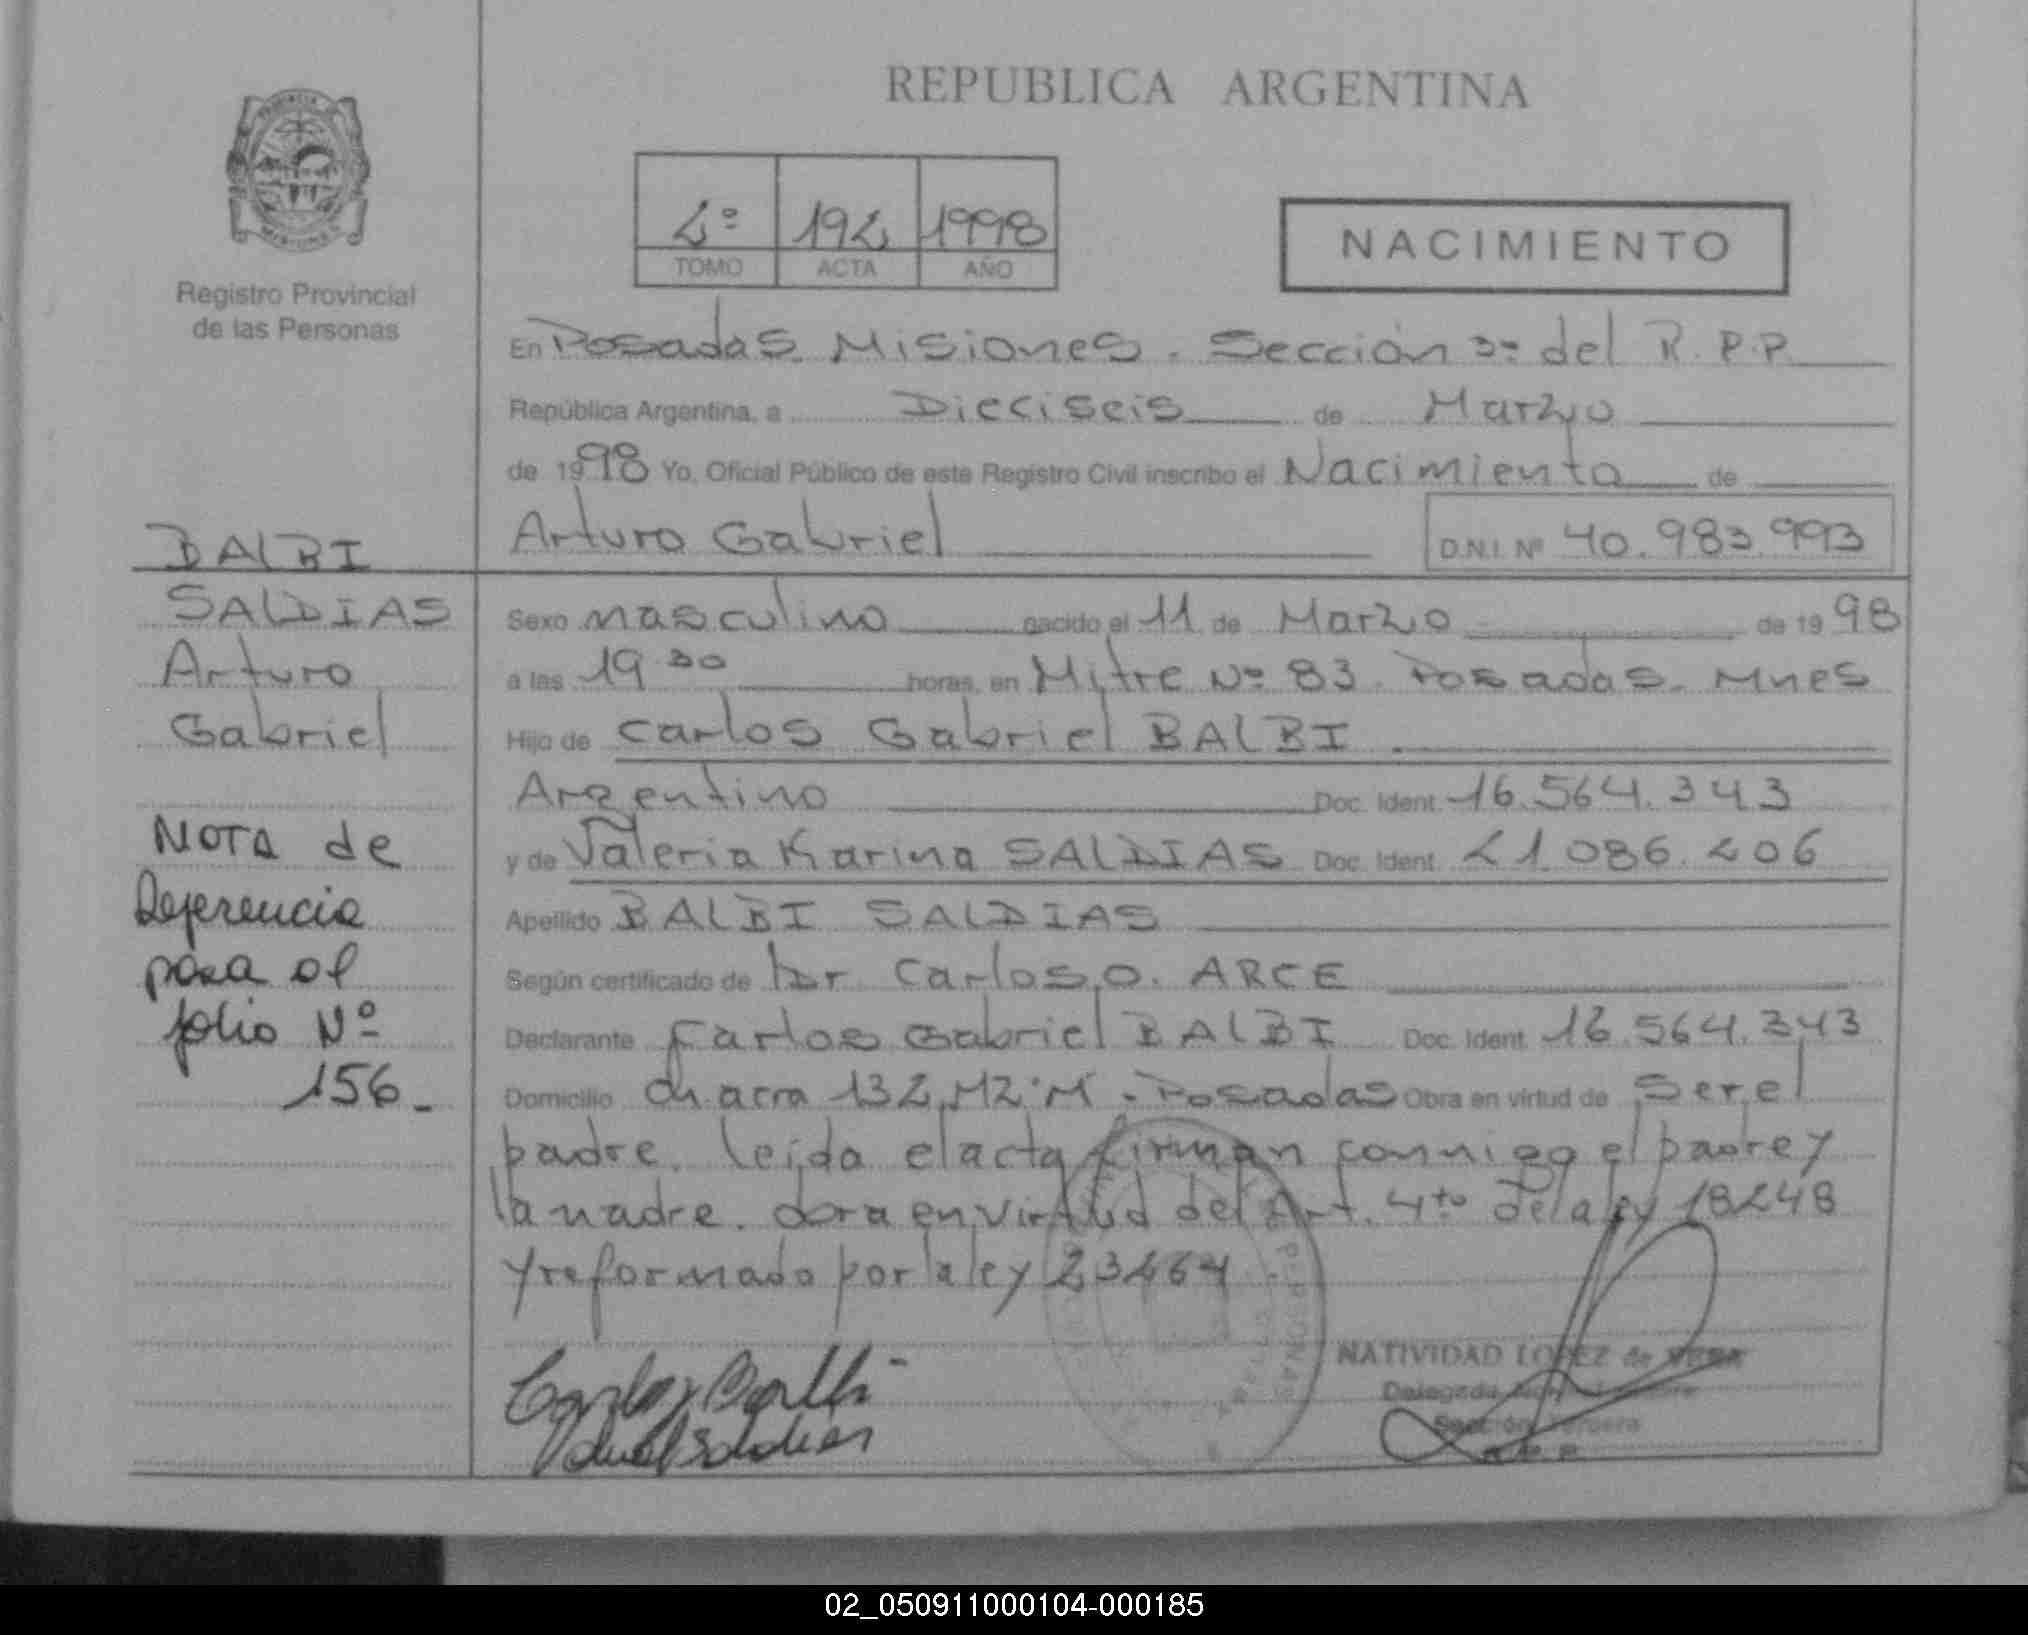 REPUBLICA ARGENTINA
2º 192 1998
TOMO ACTA AÑO
NACIMIENTO
Registro Provincial
de las Personas
En Posadas Misiones. Sección 3º del R.P.P
República Argentina, a Dieciseis de Marzo
de 1998 Yo, Oficial Público de este Registro Civil inscribo el Nacimiento de
Arturo Gabriel D.N.I. Nº 40.983.993
BALBI
SALDIAS
Arturo
Gabriel
Nota de
Referencia
para el
folio Nº
156-
Sexo masculino nacido el 11 de Marzo de 1998
a las 19 30 horas, en Mitre Nº 83. Posadas. Mnes
Hijo de Carlos Gabriel BALBI.
Argentino Doc. Ident. 16.564.343
y de Valeria Karina SALDIAS Doc. Ident. 21.086.206
Apellido BALBI SALDIAS
Según certificado de Dr Carlos O. ARCE
Declarante Carlos Gabriel BALBI Doc. Ident. 16.564.343
Domicilio Chacra 132 MZ"M". Posadas Obra en virtud de Ser el
padre. leida el acta firman conmigo el padre y
la madre. obra en virtud del Art. 4to de la ley 18248
y reformado por la ley 23264.
Carlos Balbi
NATIVIDAD LOPEZ de VERA
Delegada
Sección Tercera
02_050911000104-000185